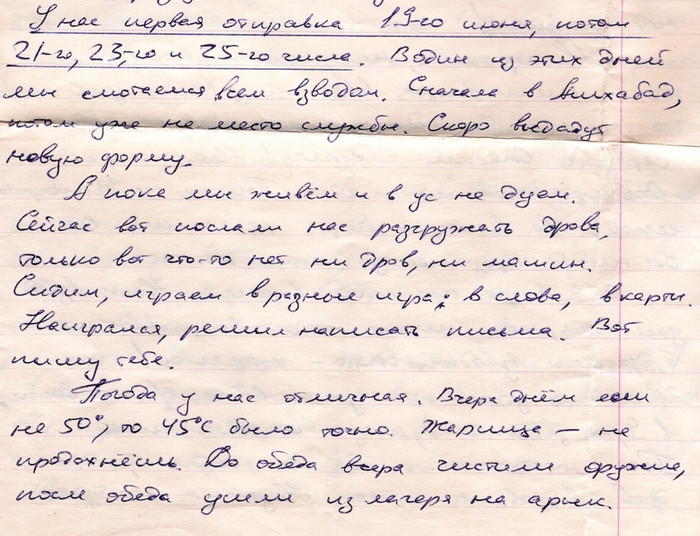 У нас первая отправка 19-го июня, потом
21-го, 23-го и 25-го числа. В один из этих дней
мы смотаемся всем взводом. Сначала в Ашхабад,
потом уже на место службы. Скоро выдадут
новую форму.
А пока мы живём и в ус не дуем.
Сейчас вот послали нас разгружать дрова,
только вот что-то нет ни дров, ни машин.
Сидим, играем в разные игра: в слова, в карты.
Наигрался, решил написать письма. Вот
пишу тебе.
Погода у нас отличная. Вчера днём если
не 50°, то 45°С было точно. Жарища — не
продохнёшь. До обеда вчера чистили оружие,
после обеда ушли из лагеря на арык.